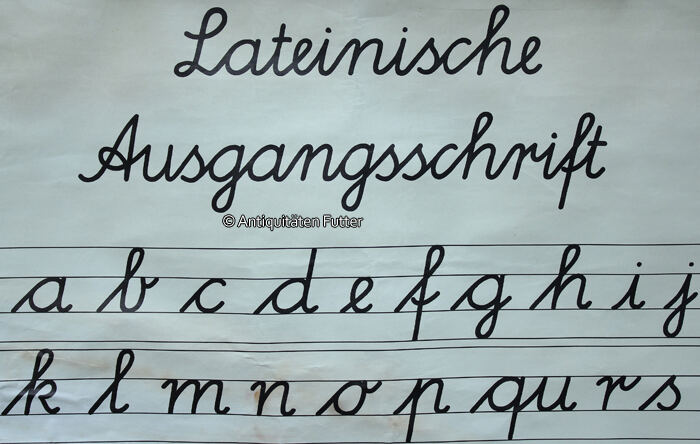 Lateinische
Ausgangsschrift
© Antiquitäten Futter
a b c d e f g h i j
k l m n o p qu r s